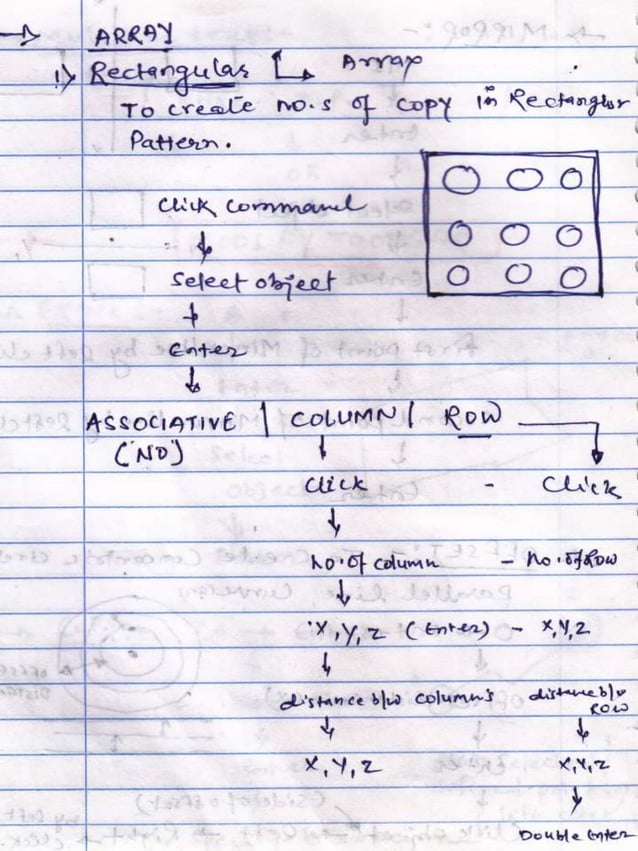 → ARRAY
1) Rectangular ↳ Array
To create no.s of copy in Rectanglor
Pattern.
Click command
↓
Select object
↓
Enter
↓
ASSOCIATIVE | COLUMN | ROW
(NO)
↓
Click - Click
↓
no. of column - no. of Row
↓
X, Y, Z (Enter) - X, Y, Z
↓
distance b/w column's distance b/w ROW
↓ ↓
X, Y, Z X, Y, Z
↓
Double Enter